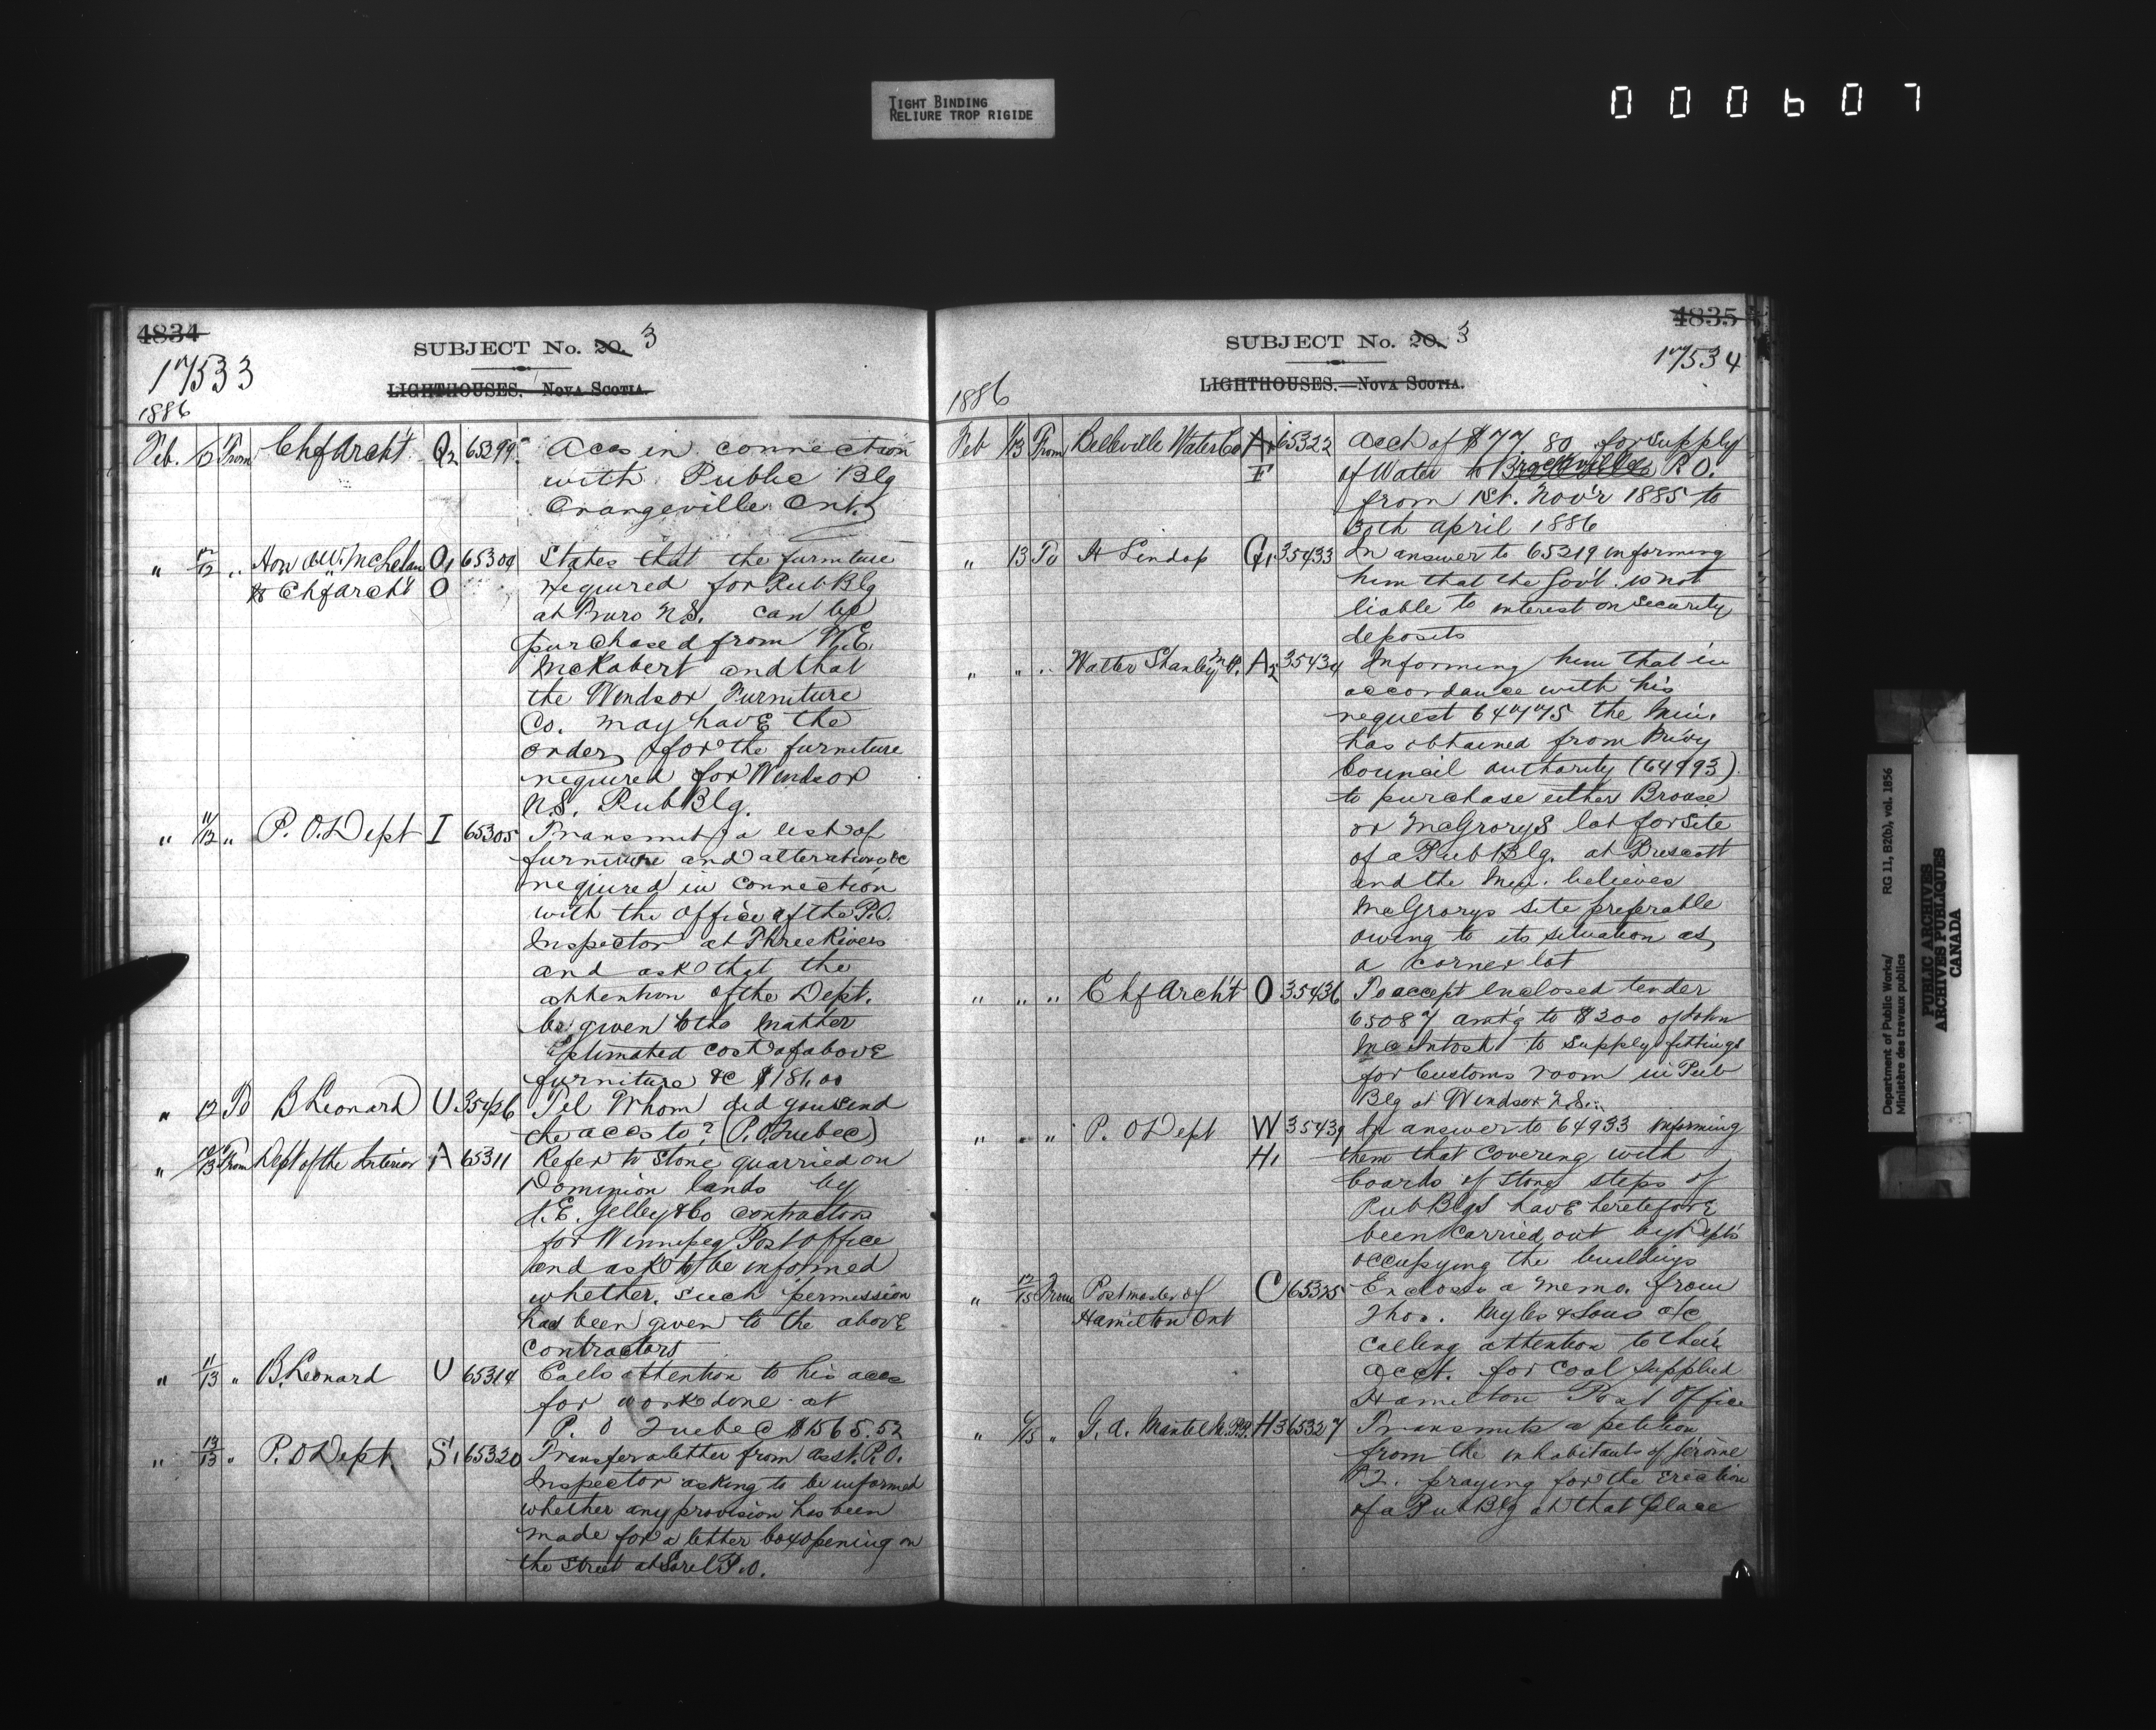 TIGHT BINDING
RELIURE TROP RIGIDE
000607
4834
SUBJECT No. 20. 3
17533
LIGHTHOUSES. NOVA SCOTIA.
1886
Feb. 12 From Chf Archt. Q2 65299 Accs in connection
with Public Blg
Orangeville Ont.
" 12/12 " Hon A W. McLelan O1 65304 States that the furniture
to Chf Archt O required for Pub Blg
at Truro N.S. can be
purchased from W.E.
McRobert and that
the Windsor Furniture
Co. may have the
order for the furniture
required for Windsor
N.S. Pub Blg.
" 11/12 " P. O. Dept I 65305 Transmits a list of
furniture and alterations &c
required in connection
with the office of the P.O.
Inspector at Three Rivers
and ask that the
attention of the Dept.
be given to the matter
Estimated cost of above
furniture &c $181.00
" 12 To B Leonard U 35426 Tel Whom did you send
the accs to? (P.O. Quebec)
" 12/13 From Dept of the Interior A 65311 Refer to Stone quarried on
Dominion lands by
J.E. Gelley & Co contractors
for Winnipeg Post Office
and ask to be informed
whether such permission
has been given to the above
contractors
" 11/13 " B. Leonard U 65314 Calls attention to his accs
for work done at
P. O Quebec $1565.52
" 13/13 " P. O Dept. S1 65320 Transfer a letter from asst. P.O.
Inspector asking to be informed
whether any provision has been
made for a letter box opening on
the Street at Sorel P.O.
4835
SUBJECT No. 20. 3
17534
LIGHTHOUSES.—NOVA SCOTIA.
1886
Feb 13 From Belleville Water Co A1 65322 Acct of $77 80 for supply
F of Water to Brockville P.O.
from 1st. Nov'r 1885 to
30th april 1886
" 13 To H Lindop G1 35433 In answer to 65219 informing
him that the Gov't. is not
liable to interest on security
deposits
" " " Walter Shanly M.P. A2 35434 Informing him that in
accordance with his
request 64775 the Min.
has obtained from Privy
Council authority (64993)
to purchase either Brouse
or McGrorys lot for site
of a Pub Blg. at Prescott
and the Min. believes
McGrorys site preferable
owing to its situation as
a corner lot
" " " Chf Arch't O 35436 To accept enclosed tender
65087 amt'g to $300 of John
McIntosh to supply fittings
for Customs room in Pub
Blg at Windsor N.S.
" " " P. O Dept W 35439 In answer to 64933 informing
H1 them that covering with
boards of stone steps of
Pub Blgs have heretofore
been carried out by Depts
occupying the buildings
" 12/15 From Postmaster of C 65325 Encloses a memo. from
Hamilton Ont Thos. Myles & Sons
calling attention to their
acct. for coal supplied
Hamilton Post Office
" /15 " G. A. Mantel M.P.P. H3 65327 Transmits a petition
from the inhabitants of Jérôme
P.Q. praying for the erection
of a Pub Blg at that place
Department of Public Works/ RG 11, B2(b), vol. 1856
Ministère des travaux publics
PUBLIC ARCHIVES
ARCHIVES PUBLIQUES
CANADA